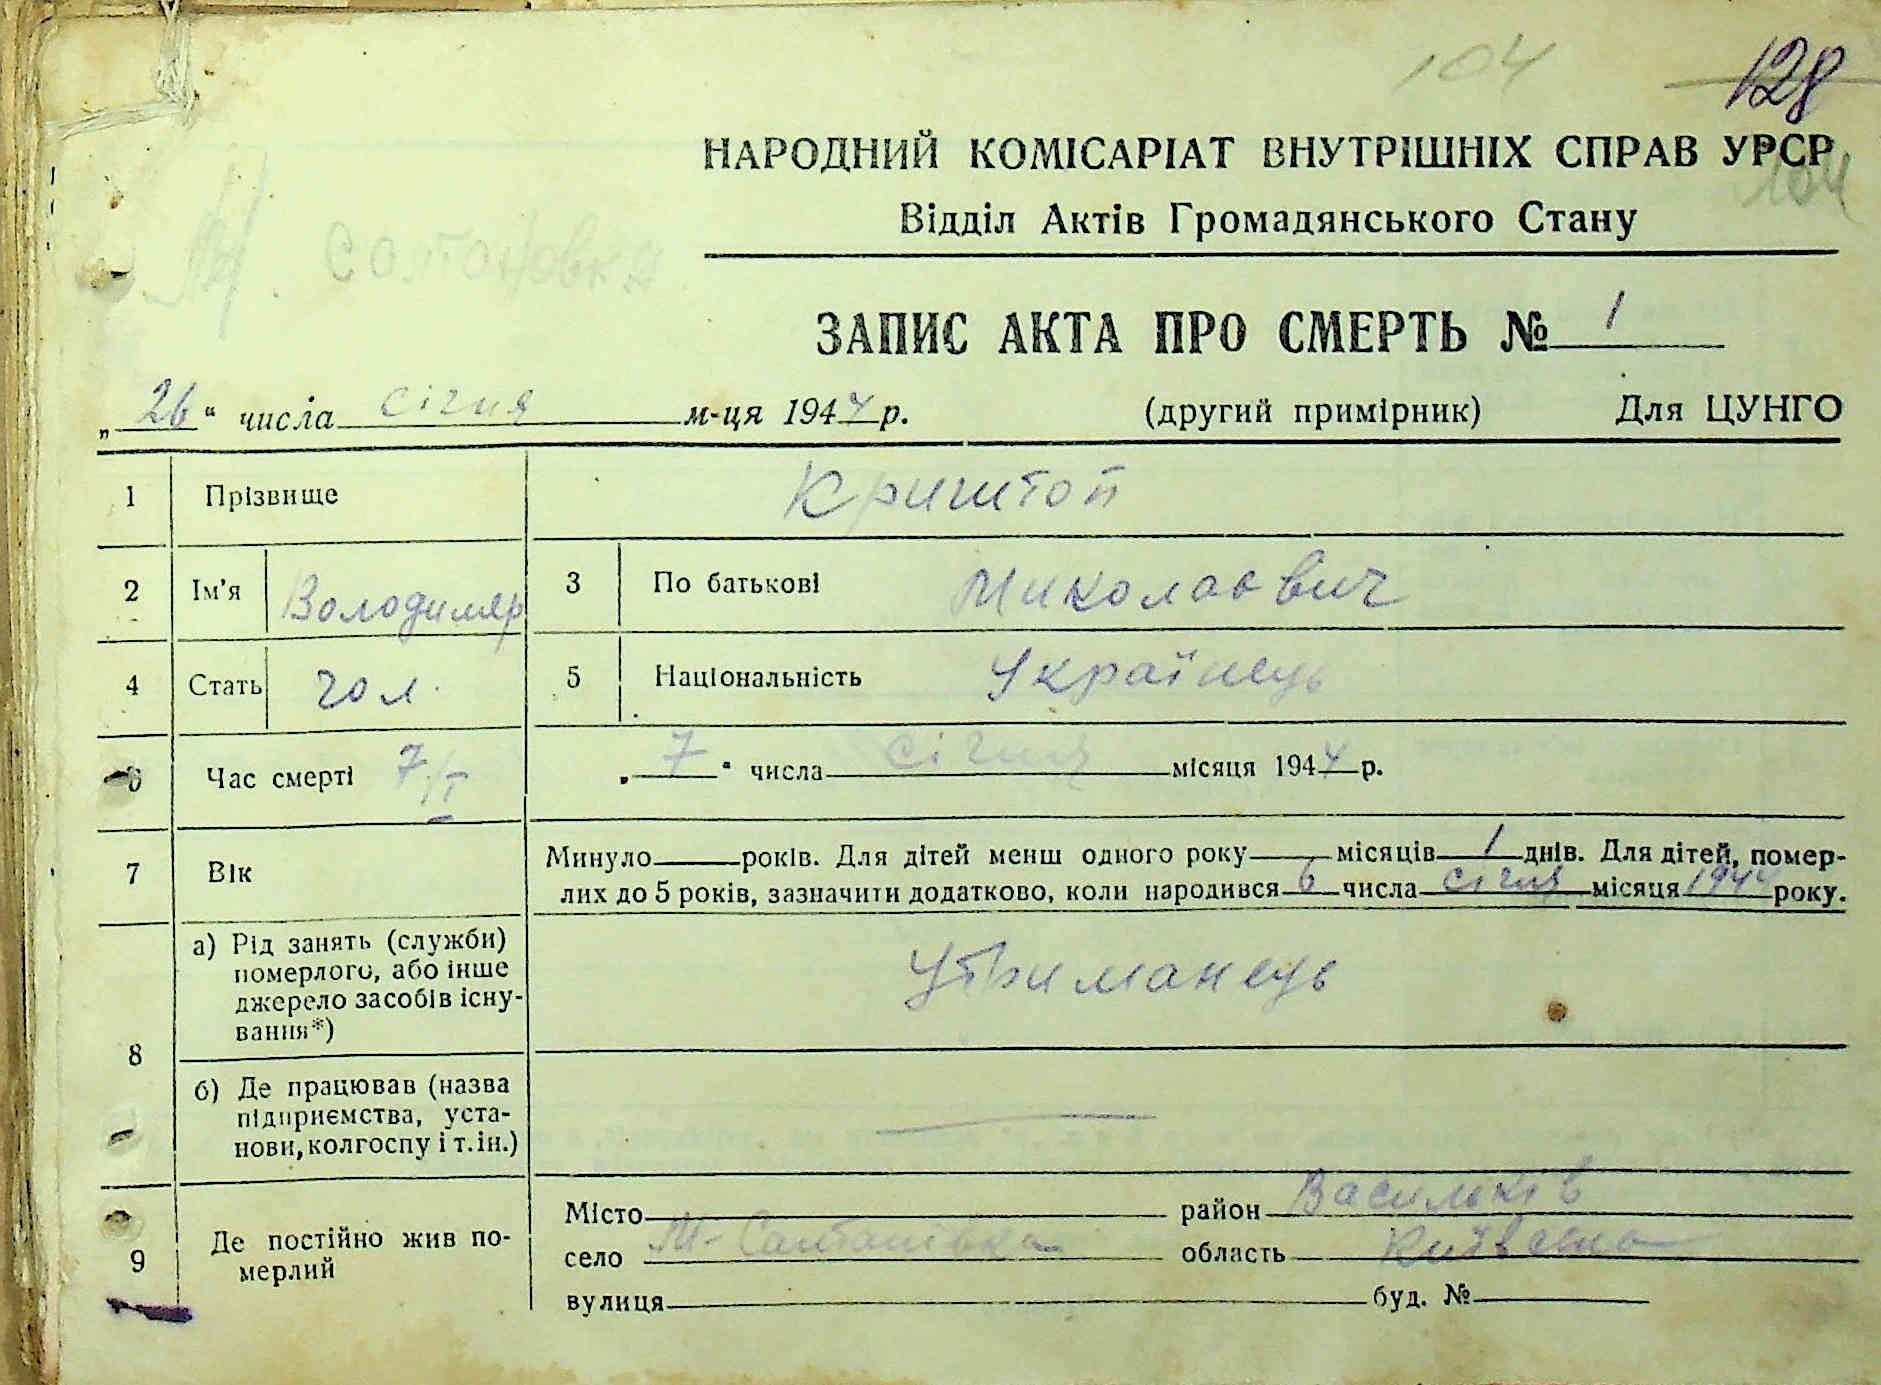 104
128
НАРОДНИЙ КОМІСАРІАТ ВНУТРІШНІХ СПРАВ УРСР
104
Відділ Актів Громадянського Стану
М. Солтоновка
ЗАПИС АКТА ПРО СМЕРТЬ № 1
„26“ числа січня м-ця 1944 р. (другий примірник) Для ЦУНГО
1 Прізвище Криштоп
2 Ім’я Володимир 3 По батькові Миколаович
4 Стать чол. 5 Національність Українець
6 Час смерті 7/I „7“ числа січня місяця 1944 р.
7 Вік Минуло — років. Для дітей менш одного року — місяців 1 днів. Для дітей, помер-
лих до 5 років, зазначити додатково, коли народився 6 числа січня місяця 1944 року.
8 а) Рід занять (служби)
померлого, або інше
джерело засобів існу-
вання*)
Утриманець
б) Де працював (назва
підприємства, уста-
нови, колгоспу і т.ін.)
9 Де постійно жив по-
мерлий
Місто район Васильків
село М-Салтанівка область Київська
вулиця буд. №